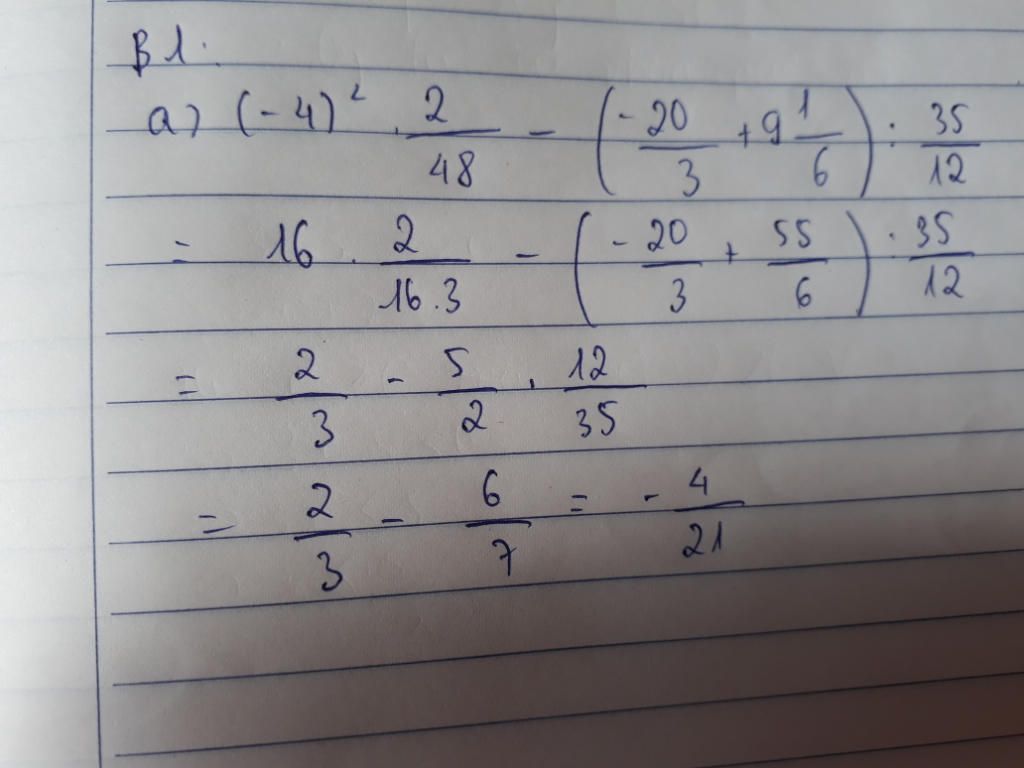 B1.
a) (-4)² · 2/48 - (-20/3 + 9 1/6) : 35/12
= 16 · 2/16.3 - (-20/3 + 55/6) : 35/12
= 2/3 - 5/2 · 12/35
= 2/3 - 6/7 = - 4/21